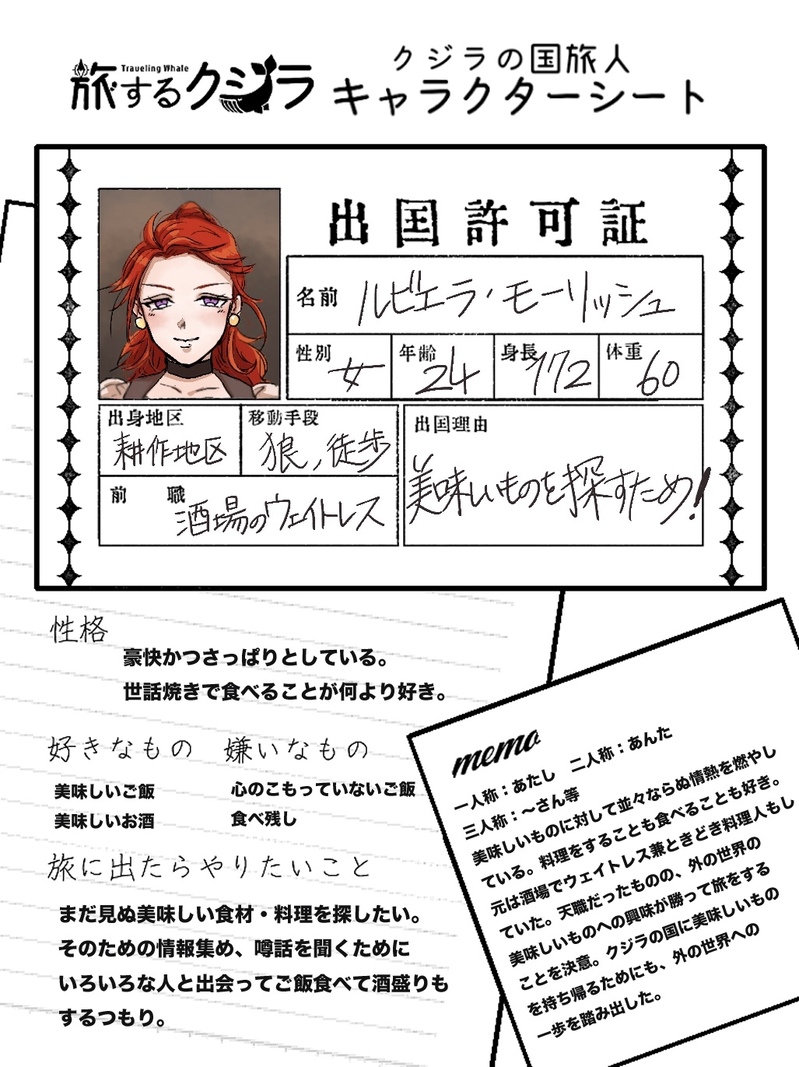 旅するクジラ
Traveling Whale
クジラの国旅人
キャラクターシート
出国許可証
名前 ルビエラ・モーリッシュ
性別 女 年齢 24 身長 172 体重 60
出身地区 耕作地区 移動手段 狼、徒歩
前職 酒場のウェイトレス
出国理由
美味しいものを探すため!
性格
豪快かつさっぱりとしている。
世話焼きで食べることが何より好き。
好きなもの 嫌いなもの
美味しいご飯 心のこもっていないご飯
美味しいお酒 食べ残し
旅に出たらやりたいこと
まだ見ぬ美味しい食材・料理を探したい。
そのための情報集め、噂話を聞くために
いろいろな人と出会ってご飯食べて酒盛りも
するつもり。
memo
一人称:あたし 二人称:あんた
三人称:〜さん等
美味しいものに対して並々ならぬ情熱を燃やし
ている。料理をすることも食べることも好き。
元は酒場でウェイトレス兼ときどき料理人もし
ていた。天職だったものの、外の世界の
美味しいものへの興味が勝って旅をする
ことを決意。クジラの国に美味しいもの
を持ち帰るためにも、外の世界への
一歩を踏み出した。